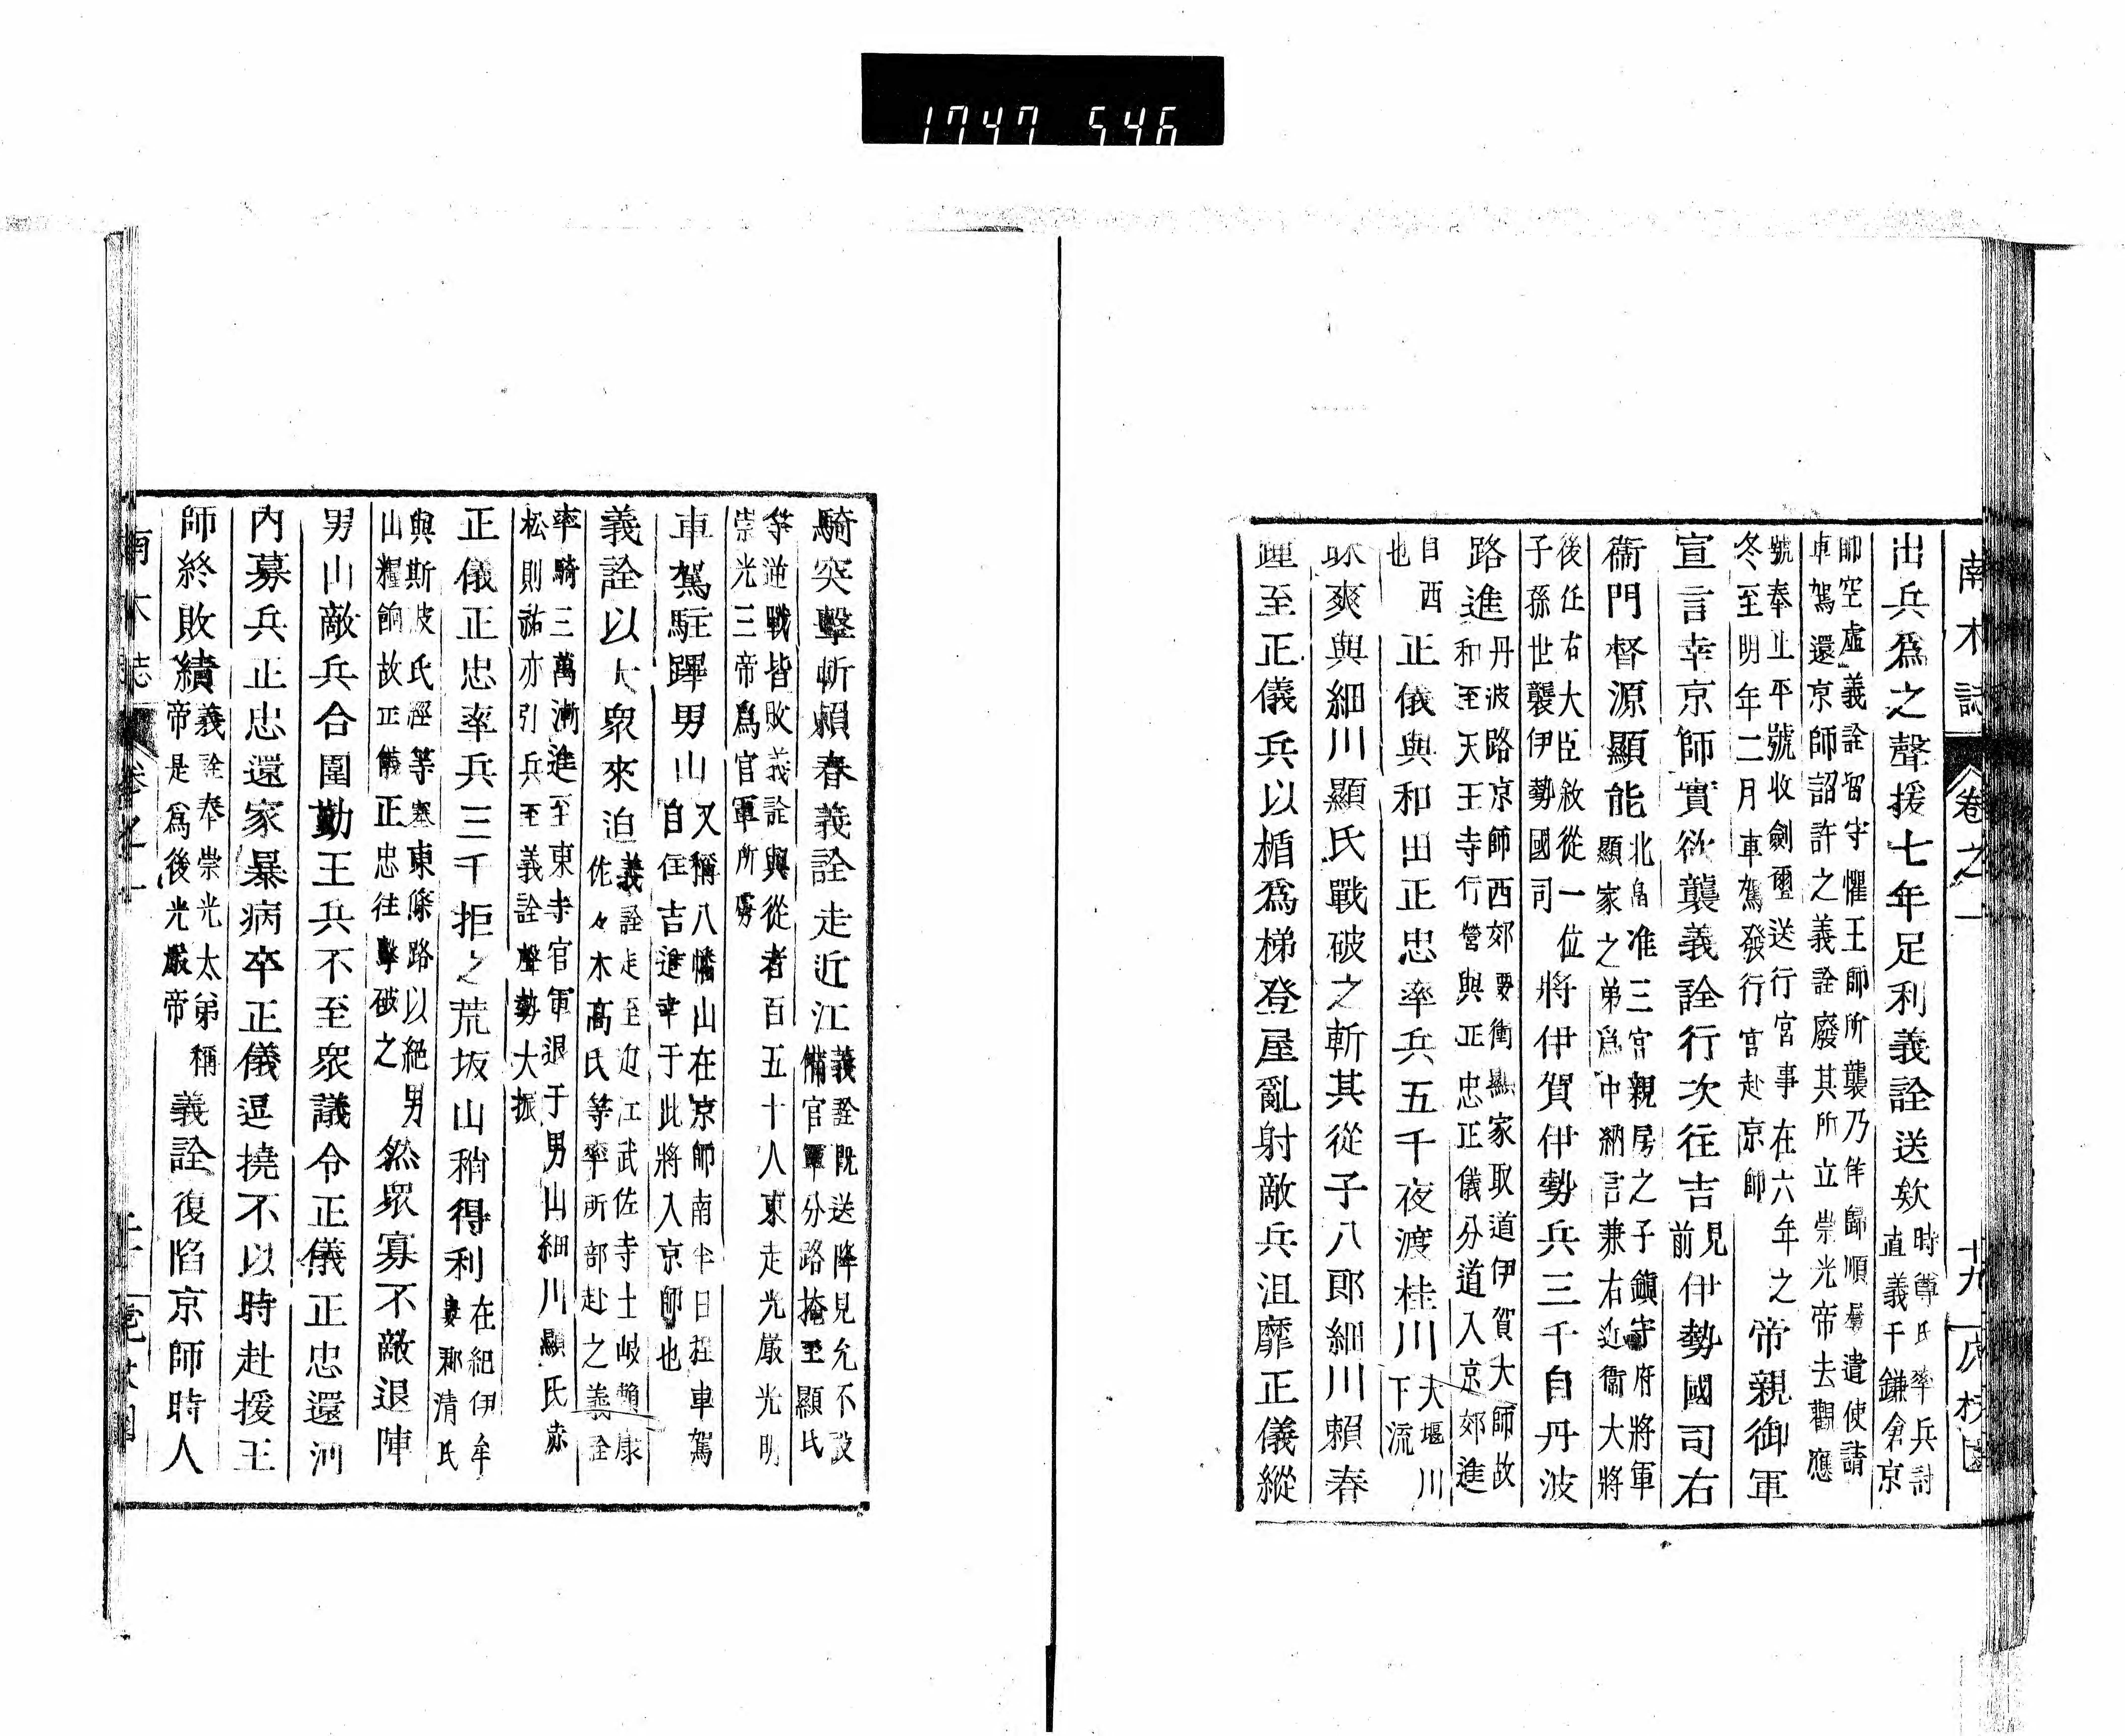 1747 546
南木誌 卷之一 廿九
出兵爲之聲援七年足利義詮送欵時尊氏率兵討直義于鎌倉京
師空虛義詮留守懼王師所襲乃佯歸順屢遣使請車駕還京師詔許之義詮廢其所立崇光帝去觀應
號奉正平號收劍璽送行宮事在六年之冬至明年二月車駕發行宮赴京師帝親御軍
宣言幸京師實欲襲義詮行次住吉見前伊勢國司右
衞門督源顯能北畠准三宮親房之子鎭守府將軍顯家之弟爲中納言兼右近衞大將
後任右大臣敘從一位子孫世襲伊勢國司將伊賀伊勢兵三千自丹波
路進丹波路京師西郊要衝顯家取道伊賀大師故和至天王寺行營與正忠正儀分道入京郊進
自西也正儀與和田正忠率兵五千夜渡桂川大堰川下流
昧爽與細川顯氏戰破之斬其從子八郎細川賴春
踵至正儀兵以楯爲梯登屋亂射敵兵沮靡正儀縱
騎突擊斬賴春義詮走近江義詮旣送降見允不設備官軍分路掩至顯氏
等逆戰皆敗義詮與從者百五十人東走光嚴光明崇光三帝爲官軍所虜
車駕駐蹕男山又稱八幡山在京師南半日程車駕自住吉進幸于此將入京師也
義詮以大衆來迫義詮走至近江武佐寺士岐賴康佐々木高氏等率所部赴之義詮
率騎三萬漸進至東寺官軍退于男山細川顯氏赤松則祐亦引兵至義詮聲勢大振
正儀正忠率兵三千拒之荒坂山稍得利在紀伊牟婁郡淸氏
與斯波氏經等塞東條路以絕男山糧餉故正儀正忠往擊破之然衆寡不敵退陣
男山敵兵合圍勤王兵不至衆議令正儀正忠還河
內募兵正忠還家暴病卒正儀逗撓不以時赴援王
師終敗績義詮奉崇光太弟稱帝是爲後光嚴帝義詮復陷京師時人
南木誌 卷之一